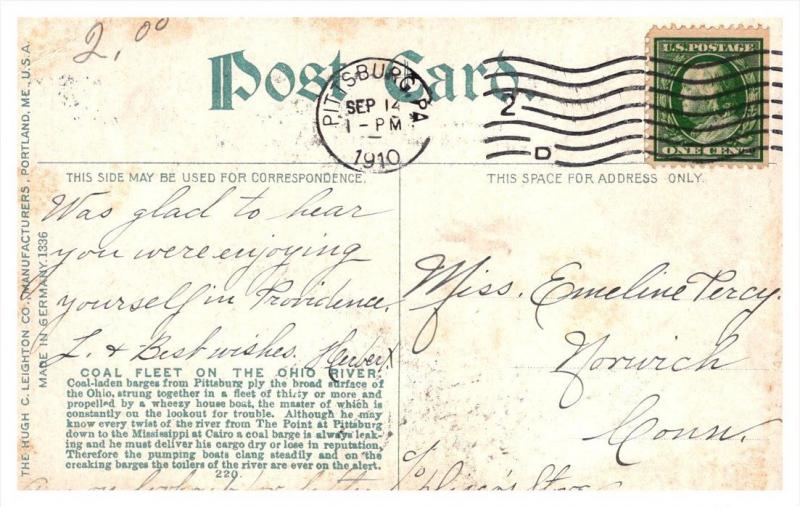 2.00
Post Card.
PITTSBURG, PA
SEP 14
1-PM
1910
2
D
U.S. POSTAGE
ONE CENT
THE HUGH C. LEIGHTON CO. MANUFACTURERS, PORTLAND, ME. U.S.A.
MADE IN GERMANY. 1336
THIS SIDE MAY BE USED FOR CORRESPONDENCE.
THIS SPACE FOR ADDRESS ONLY.
Was glad to hear
you were enjoying
yourself in Providence.
L. & Best wishes. Herbert
COAL FLEET ON THE OHIO RIVER.
Coal-laden barges from Pittsburg ply the broad surface of
the Ohio, strung together in a fleet of thirty or more and
propelled by a wheezy house boat, the master of which is
constantly on the lookout for trouble. Although he may
know every twist of the river from The Point at Pittsburg
down to the Mississippi at Cairo a coal barge is always leak-
ing and he must deliver his cargo dry or lose in reputation.
Therefore the pumping boats clang steadily and on the
creaking barges the toilers of the river are ever on the alert.
220.
Miss. Emeline Percy.
Norwich
Conn.
c/o